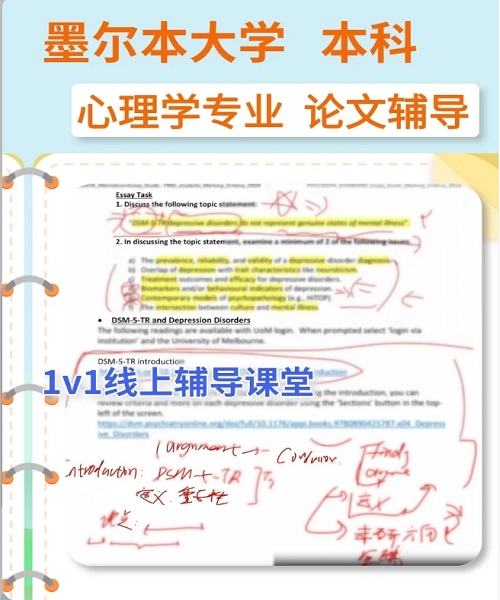 墨尔本大学 本科
心理学专业 论文辅导
Essay Task
1. Discuss the following topic statement:
"DSM-5-TR depressive disorders do not represent genuine states of mental illness"
2. In discussing the topic statement, examine a minimum of 2 of the following issues
a) The prevalence, reliability, and validity of a depressive disorder diagnosis
b) Overlap of depression with trait characteristics like neuroticism.
Treatment outcomes and efficacy for depressive disorders.
Biomarkers and/or behavioural indicators of depression
Contemporary models of psychopathology (e.g., HiTOP).
The intersection between culture and mental illness.
• DSM-5-TR and Depression Disorders
The following readings are available with UoM login. When prompted select 'login via
institution' and the University of Melbourne.
DSM-5-TR introduction
1v1线上辅导课堂
the introduction, you can
review criteria and more on each depressive disorder using the 'Sections' button in the top-
left of the screen.
https://dsm.psychiatryonline.org/doi/full/10.1176/appi.books.9780890425787.x04_Depress
ive_Disorders
argument
introduction: DSM-5-TR
定义 重要性
观点:
定义